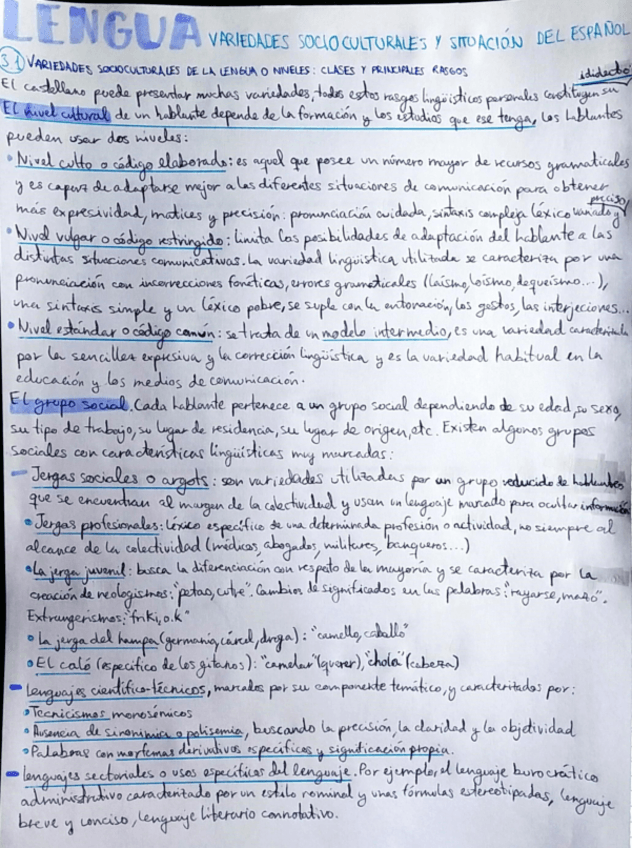 LENGUA VARIEDADES SOCIOCULTURALES Y SITUACIÓN DEL ESPAÑOL
3.1 VARIEDADES SOCIOCULTURALES DE LA LENGUA O NIVELES: CLASES Y PRINCIPALES RASGOS
idiolecto
El castellano puede presentar muchas variedades, todos estos rasgos lingüísticos personales constituyen su
El nivel cultural de un hablante depende de la formación y los estudios que ese tenga, los hablantes
pueden usar dos niveles:
• Nivel culto o código elaborado: es aquel que posee un número mayor de recursos gramaticales
y es capaz de adaptarse mejor a las diferentes situaciones de comunicación para obtener
más expresividad, matices y precisión: pronunciación cuidada, sintaxis compleja léxico variado y preciso
• Nivel vulgar o código restringido: limita las posibilidades de adaptación del hablante a las
distintas situaciones comunicativas. La variedad lingüística utilizada se caracteriza por una
pronunciación con incorrecciones fonéticas, errores gramaticales (laísmo, loísmo, dequeísmo...),
una sintaxis simple y un léxico pobre, se suple con la entonación, los gestos, las interjeciones...
• Nivel estándar o código común: se trata de un modelo intermedio, es una variedad caracterizada
por la sencillez expresiva y la corrección lingüística y es la variedad habitual en la
educación y los medios de comunicación.
El grupo social. Cada hablante pertenece a un grupo social dependiendo de su edad, su sexo,
su tipo de trabajo, su lugar de residencia, su lugar de origen, etc. Existen algunos grupos
sociales con características lingüísticas muy marcadas:
- Jergas sociales o argots: son variedades utilizadas por un grupo reducido de hablantes
que se encuentran al margen de la colectividad y usan un lenguaje marcado para ocultar información
• Jergas profesionales: léxico específico de una determinada profesión o actividad, no siempre al
alcance de la colectividad (médicos, abogados, militares, banqueros...)
• La jerga juvenil: busca la diferenciación con respeto de la mayoría y se caracteriza por la
creación de neologismos: "petao, cutre". Cambios de significados en las palabras: "rayarse, mazo".
Extranjerismos: "friki, o.k"
• La jerga del hampa (germanía, cárcel, droga): "camello, caballo"
• El caló (específico de los gitanos): "camelar" (querer), "chola" (cabeza)
- Lenguajes científico-técnicos, marcados por su componente temático, y caracterizados por:
• Tecnicismos monosémicos
• Ausencia de sinonimia o polisemia, buscando la precisión, la claridad y la objetividad
• Palabras con morfemas derivativos específicos y significación propia.
- Lenguajes sectoriales o usos específicos del lenguaje. Por ejemplo, el lenguaje burocrático
administrativo caracterizado por un estilo nominal y unas fórmulas estereotipadas, lenguaje
breve y conciso, lenguaje literario connotativo.